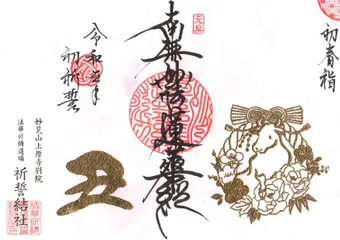 初春詣
南無妙法蓮華經
令和三年
初祈誓
丑
妙見山上原寺別院
法華祈祷道場
祈誓結社